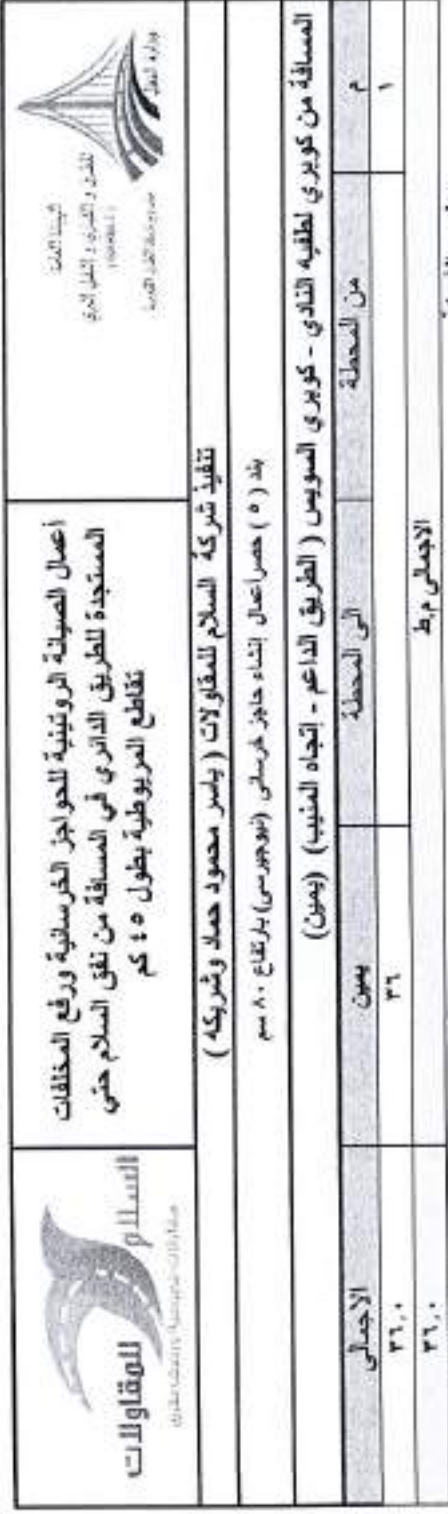 وزارة النقل
الهيئة العامة
للطرق و الكباري و النقل البري
أعمال الصيانة الروتينية للحواجز الخرسانية ورفع المخلفات
المستجدة للطريق الدائري في المسافة من نفق السلام حتي
تقاطع المريوطية بطول ٤٥ كم
السلام
للمقاولات
تنفيذ شركة السلام للمقاولات ( ياسر محمود حماد وشريكه )
بند ( ٥ ) حصر اعمال إنشاء حاجز خرسانى (نيوجيرسى) بارتفاع ٨٠ سم
المسافة من كوبري لطفيه النادي - كوبري السويس ( الطريق الداعم - إتجاه المنيب) (يمين)
م من المحطة الى المحطة يمين الاجمالى
١ ٣٦ ٣٦,٠
الاجمالى م.ط ٣٦,٠